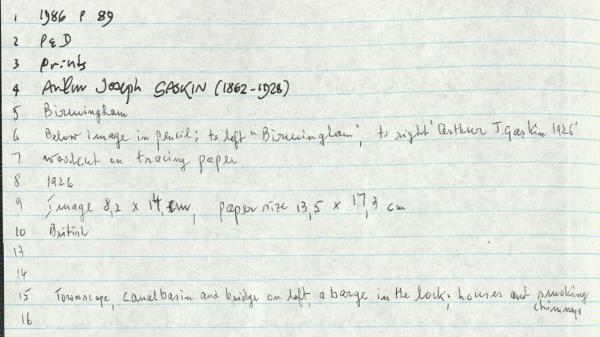 1 1986 P 89
2 P&D
3 Prints
4 Arthur Joseph GASKIN (1862-1928)
5 Birmingham
6 Below image in pencil; to left "Birmingham", to right 'Arthur J. Gaskin 1926'
7 woodcut on tracing paper
8 1926
9 Image 8,2 x 14, cm, paper size 13,5 x 17,3 cm
10 British
13
14
15 Townscape, canal basin and bridge on left, a barge in the lock, houses and smoking
chimneys
16